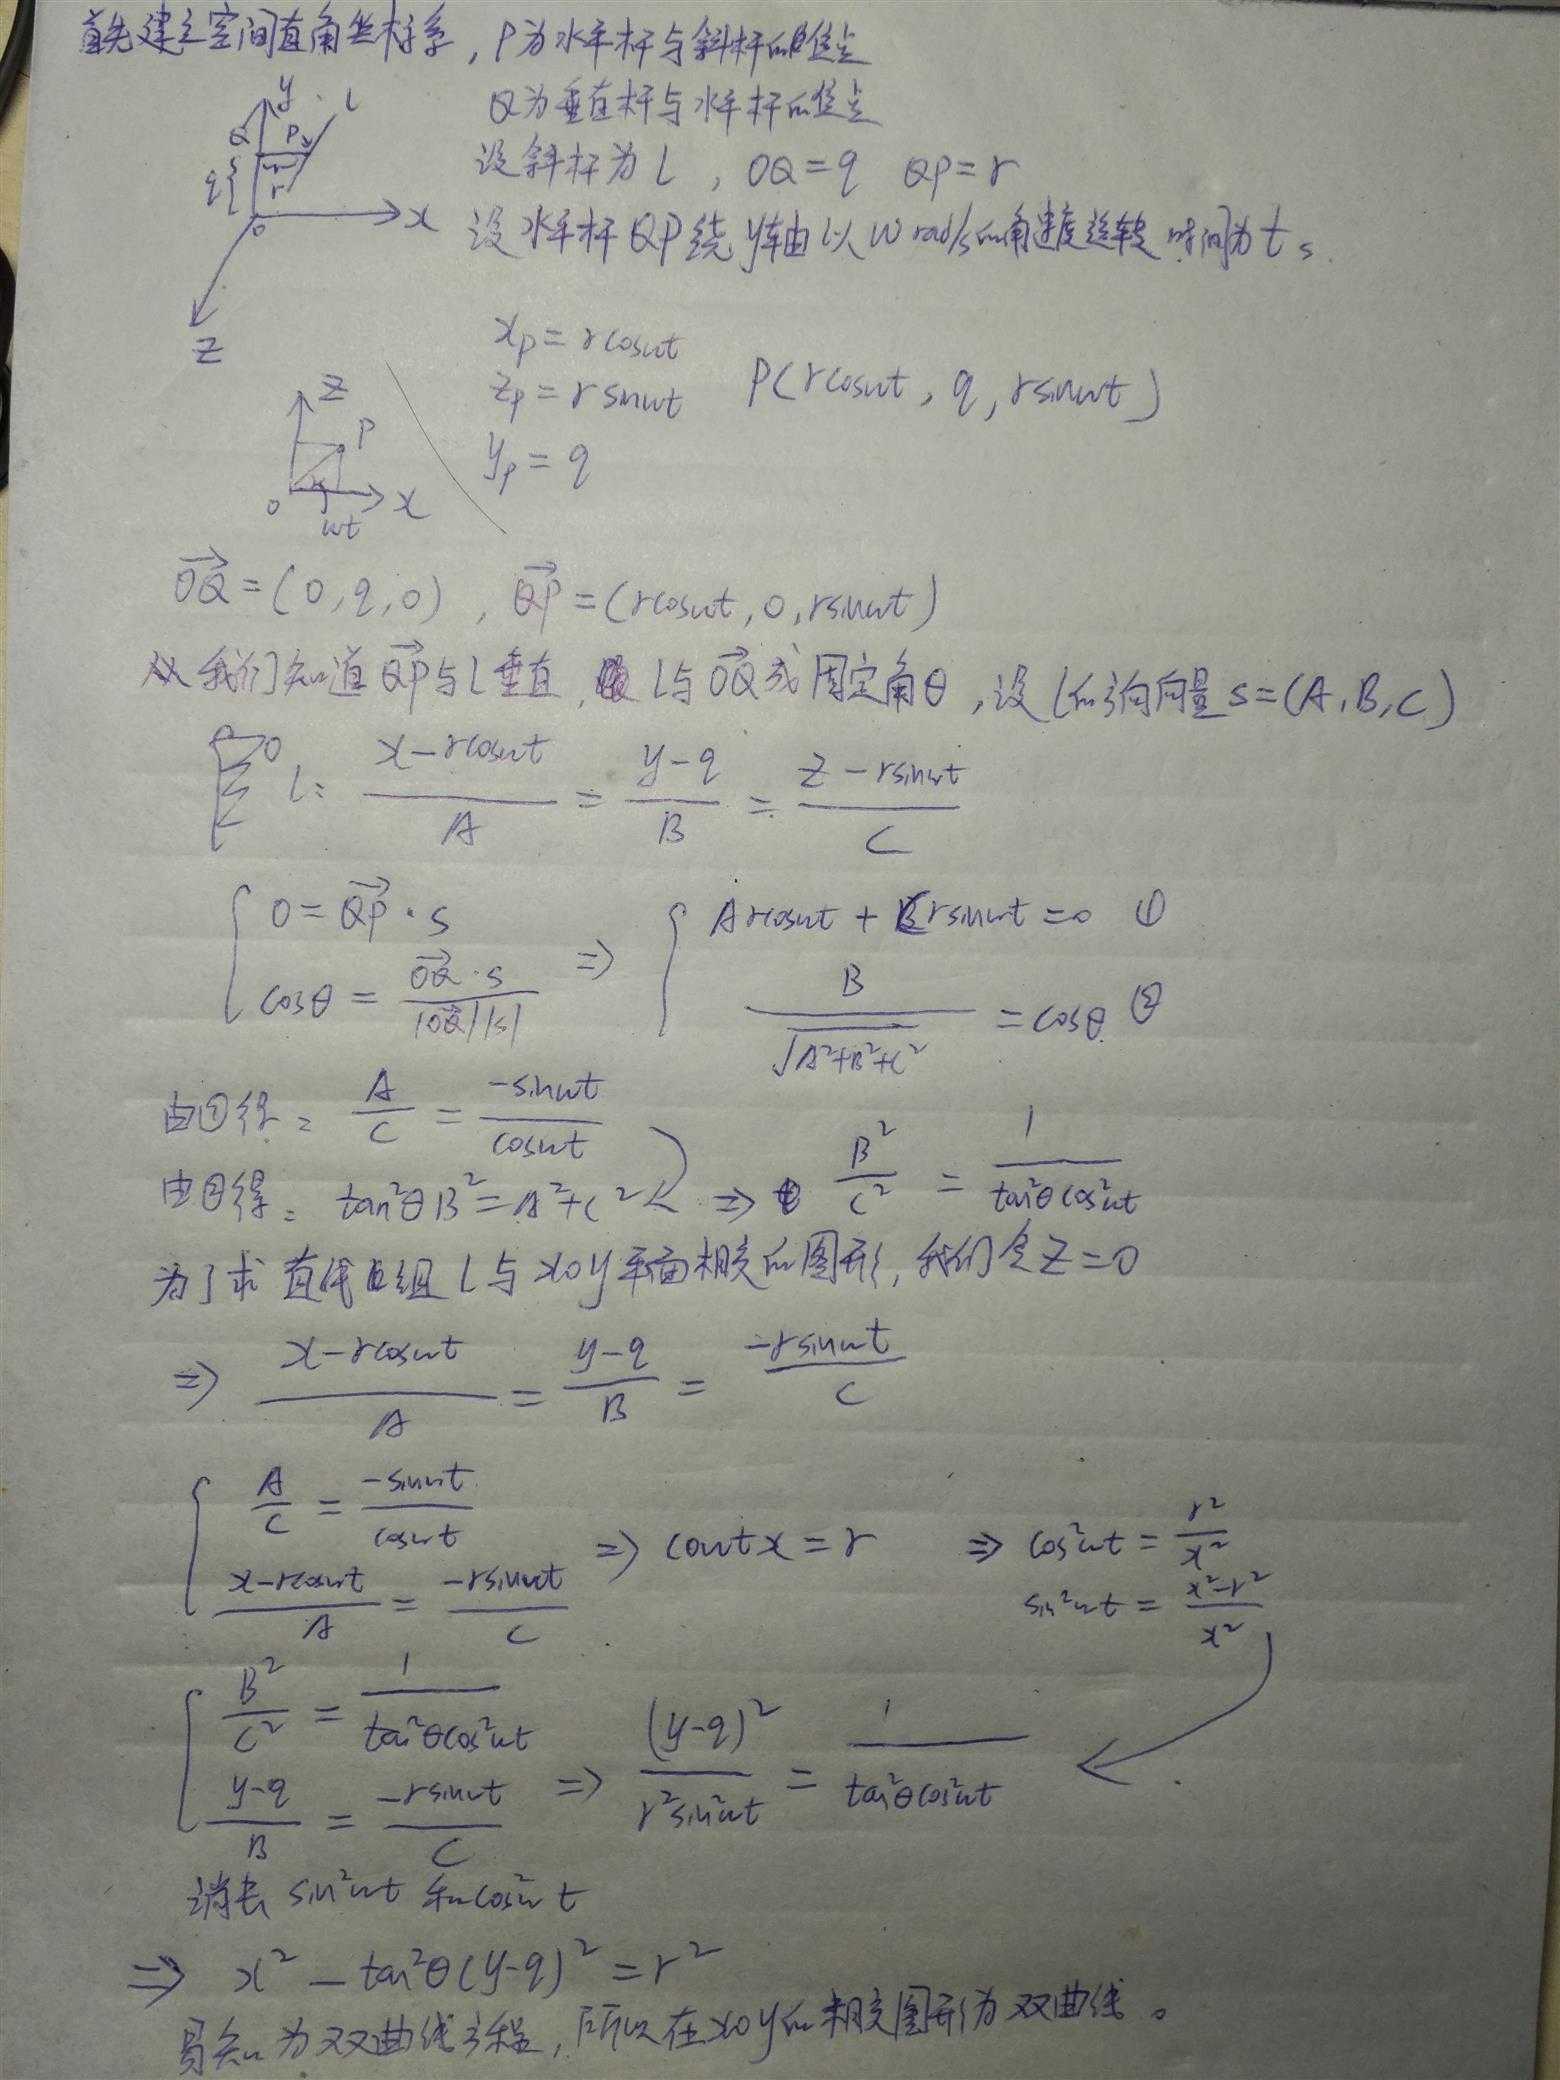 首先建立空间直角坐标系，P为水平杆与斜杆的焦点
Q为垂直杆与水平杆的焦点
设斜杆为l，OQ=q QP=r
设水平杆QP绕y轴以w rad/s的角速度旋转 时间为t s.
y
l
Q
P
q{
r
O
x
Z
x_P=rcoswt
z_P=rsinwt P(rcoswt, q, rsinwt)
y_P=q
Z
P
O
x
wt
OQ→=(0,q,0), QP→=(rcoswt,0,rsinwt)
我们知道QP→与l垂直, l与OQ→成固定角θ, 设l的方向向量s=(A,B,C)
l: (x-rcoswt)/A = (y-q)/B = (z-rsinwt)/C
{ 0=QP→·s ⇒ { Arcoswt+Crsinwt=0 ①
cosθ=(OQ→·s)/(|OQ→||s|) B/√(A²+B²+C²)=cosθ ②
由①得: A/C = -sinwt/coswt
由②得: tan²θB²=A²+C² ⇒ B²/C² = 1/(tan²θcos²wt)
为了求直线组l与xoy平面相交的图形, 我们令z=0
⇒ (x-rcoswt)/A = (y-q)/B = -rsinwt/C
{ A/C = -sinwt/coswt
(x-rcoswt)/A = -rsinwt/C ⇒ coswtx=r ⇒ cos²wt = r²/x²
sin²wt = (x²-r²)/x²
{ B²/C² = 1/(tan²θcos²wt)
(y-q)/B = -rsinwt/C ⇒ (y-q)²/(r²sin²wt) = 1/(tan²θcos²wt)
消去sin²wt和cos²wt
⇒ x²-tan²θ(y-q)²=r²
易知为双曲线方程, 所以在xoy的相交图形为双曲线。